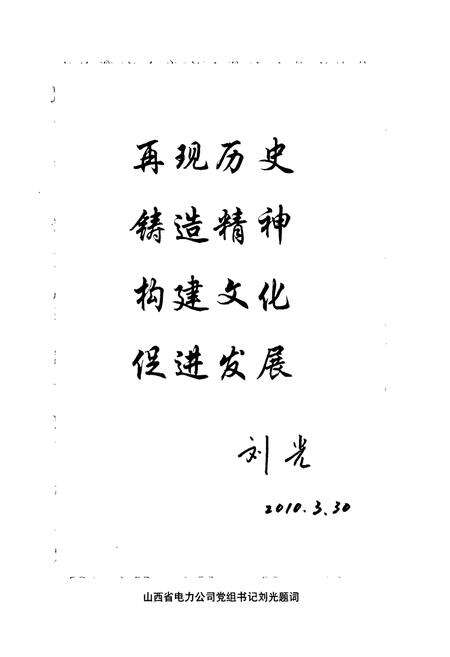 再现历史
铸造精神
构建文化
促进发展
刘光
2010.3.30
山西省电力公司党组书记刘光题词